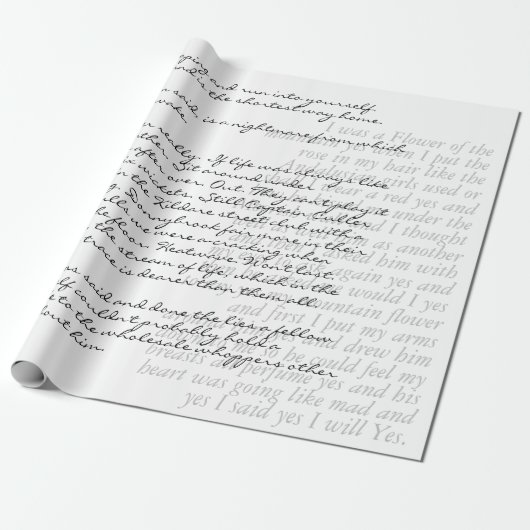 and run into yourself.
is the shortest way home.
said,
is a nightmare from which
really. If life was always like
Sit around under
over. Out. They can't play it
Still Captain Culler
Kildare street club with a
Donnybrook fair more in their
were acracking when
floor. Heatwave. Won't last.
the stream of life, which in the
is dearer than them all.
said and done the lies a fellow
couldn't probably hold a
to the wholesale whoppers other
him.
I was a Flower of the
when I put the
rose in my hair like the
Andalusian girls used or
shall I wear a red yes and
under the
and I thought
as another
asked him with
again yes and
would I yes
mountain flower
and first I put my arms
and drew him
so he could feel my
breasts all perfume yes and his
heart was going like mad and
yes I said yes I will Yes.